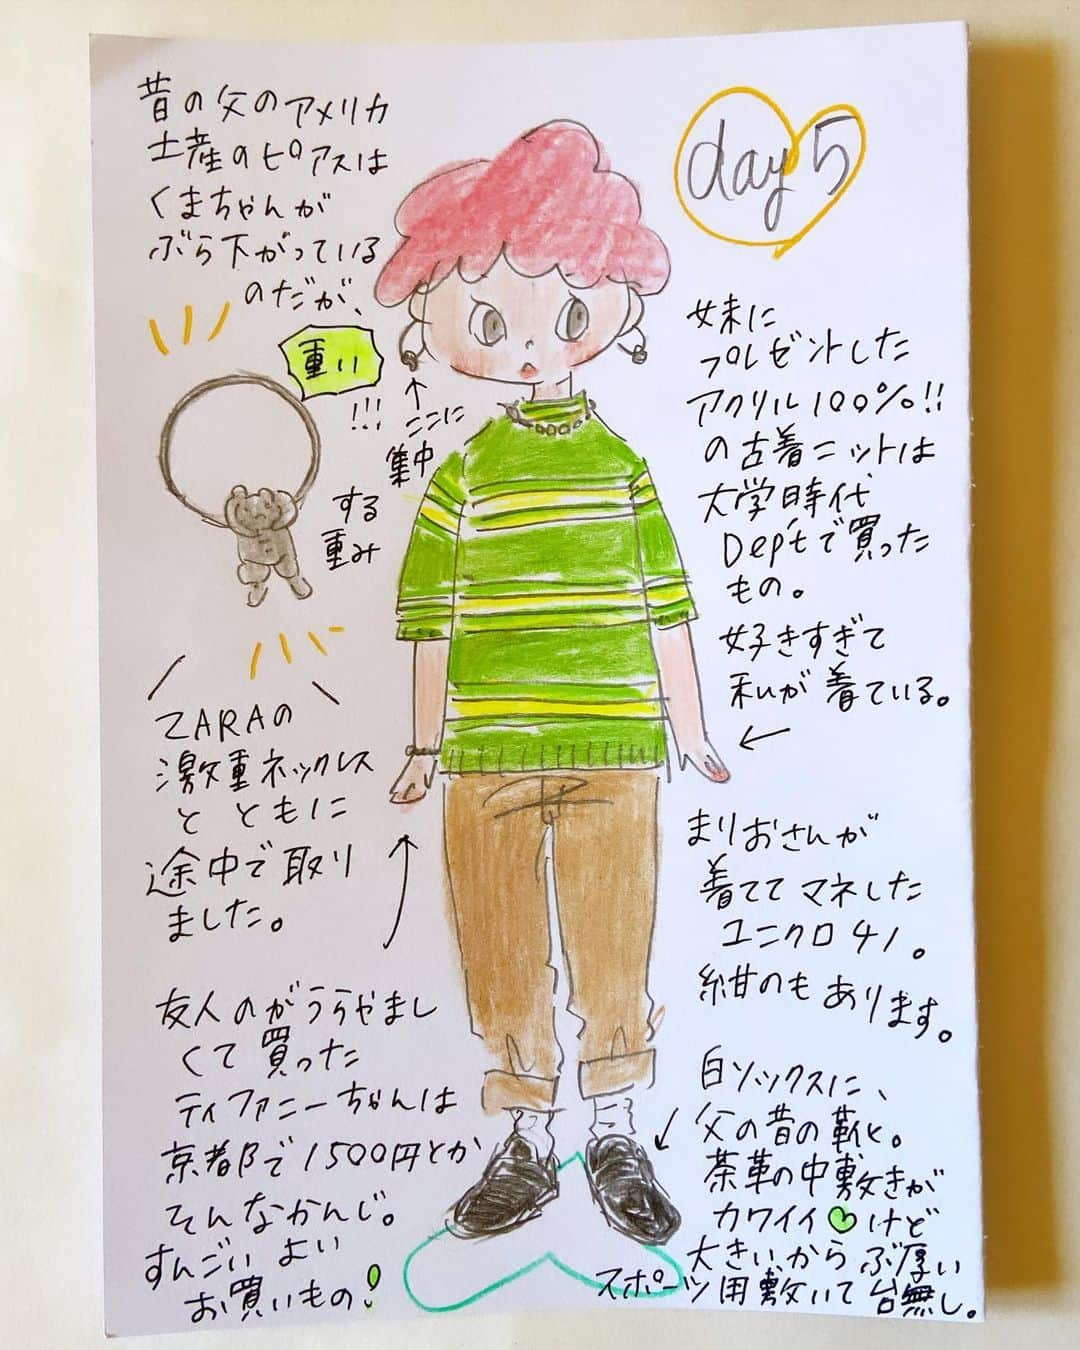 昔の父のアメリカ
土産のピアスは
くまちゃんが
ぶら下がっている
のだが、
重い
!!!
↑
ここに
集中
する
重み
ZARAの
激重ネックレス
と ともに
途中で取り
ました。
友人のがうらやまし
くて買った
ティファニーちゃんは
京都で1500円とか
そんなかんじ。
すんごい よい
お買いもの!
day 5
妹に
プレゼントした
アクリル100%!!
の古着ニットは
大学時代
Dep'tで買った
もの。
好きすぎて
私が着ている。
←
まりおさんが
着てて マネした
ユニクロ チノ。
紺のもあります。
白ソックスに、
父の昔の靴と。
茶革の中敷きが
カワイイ♡けど
大きいからぶ厚い
スポーツ用敷いて台無し。